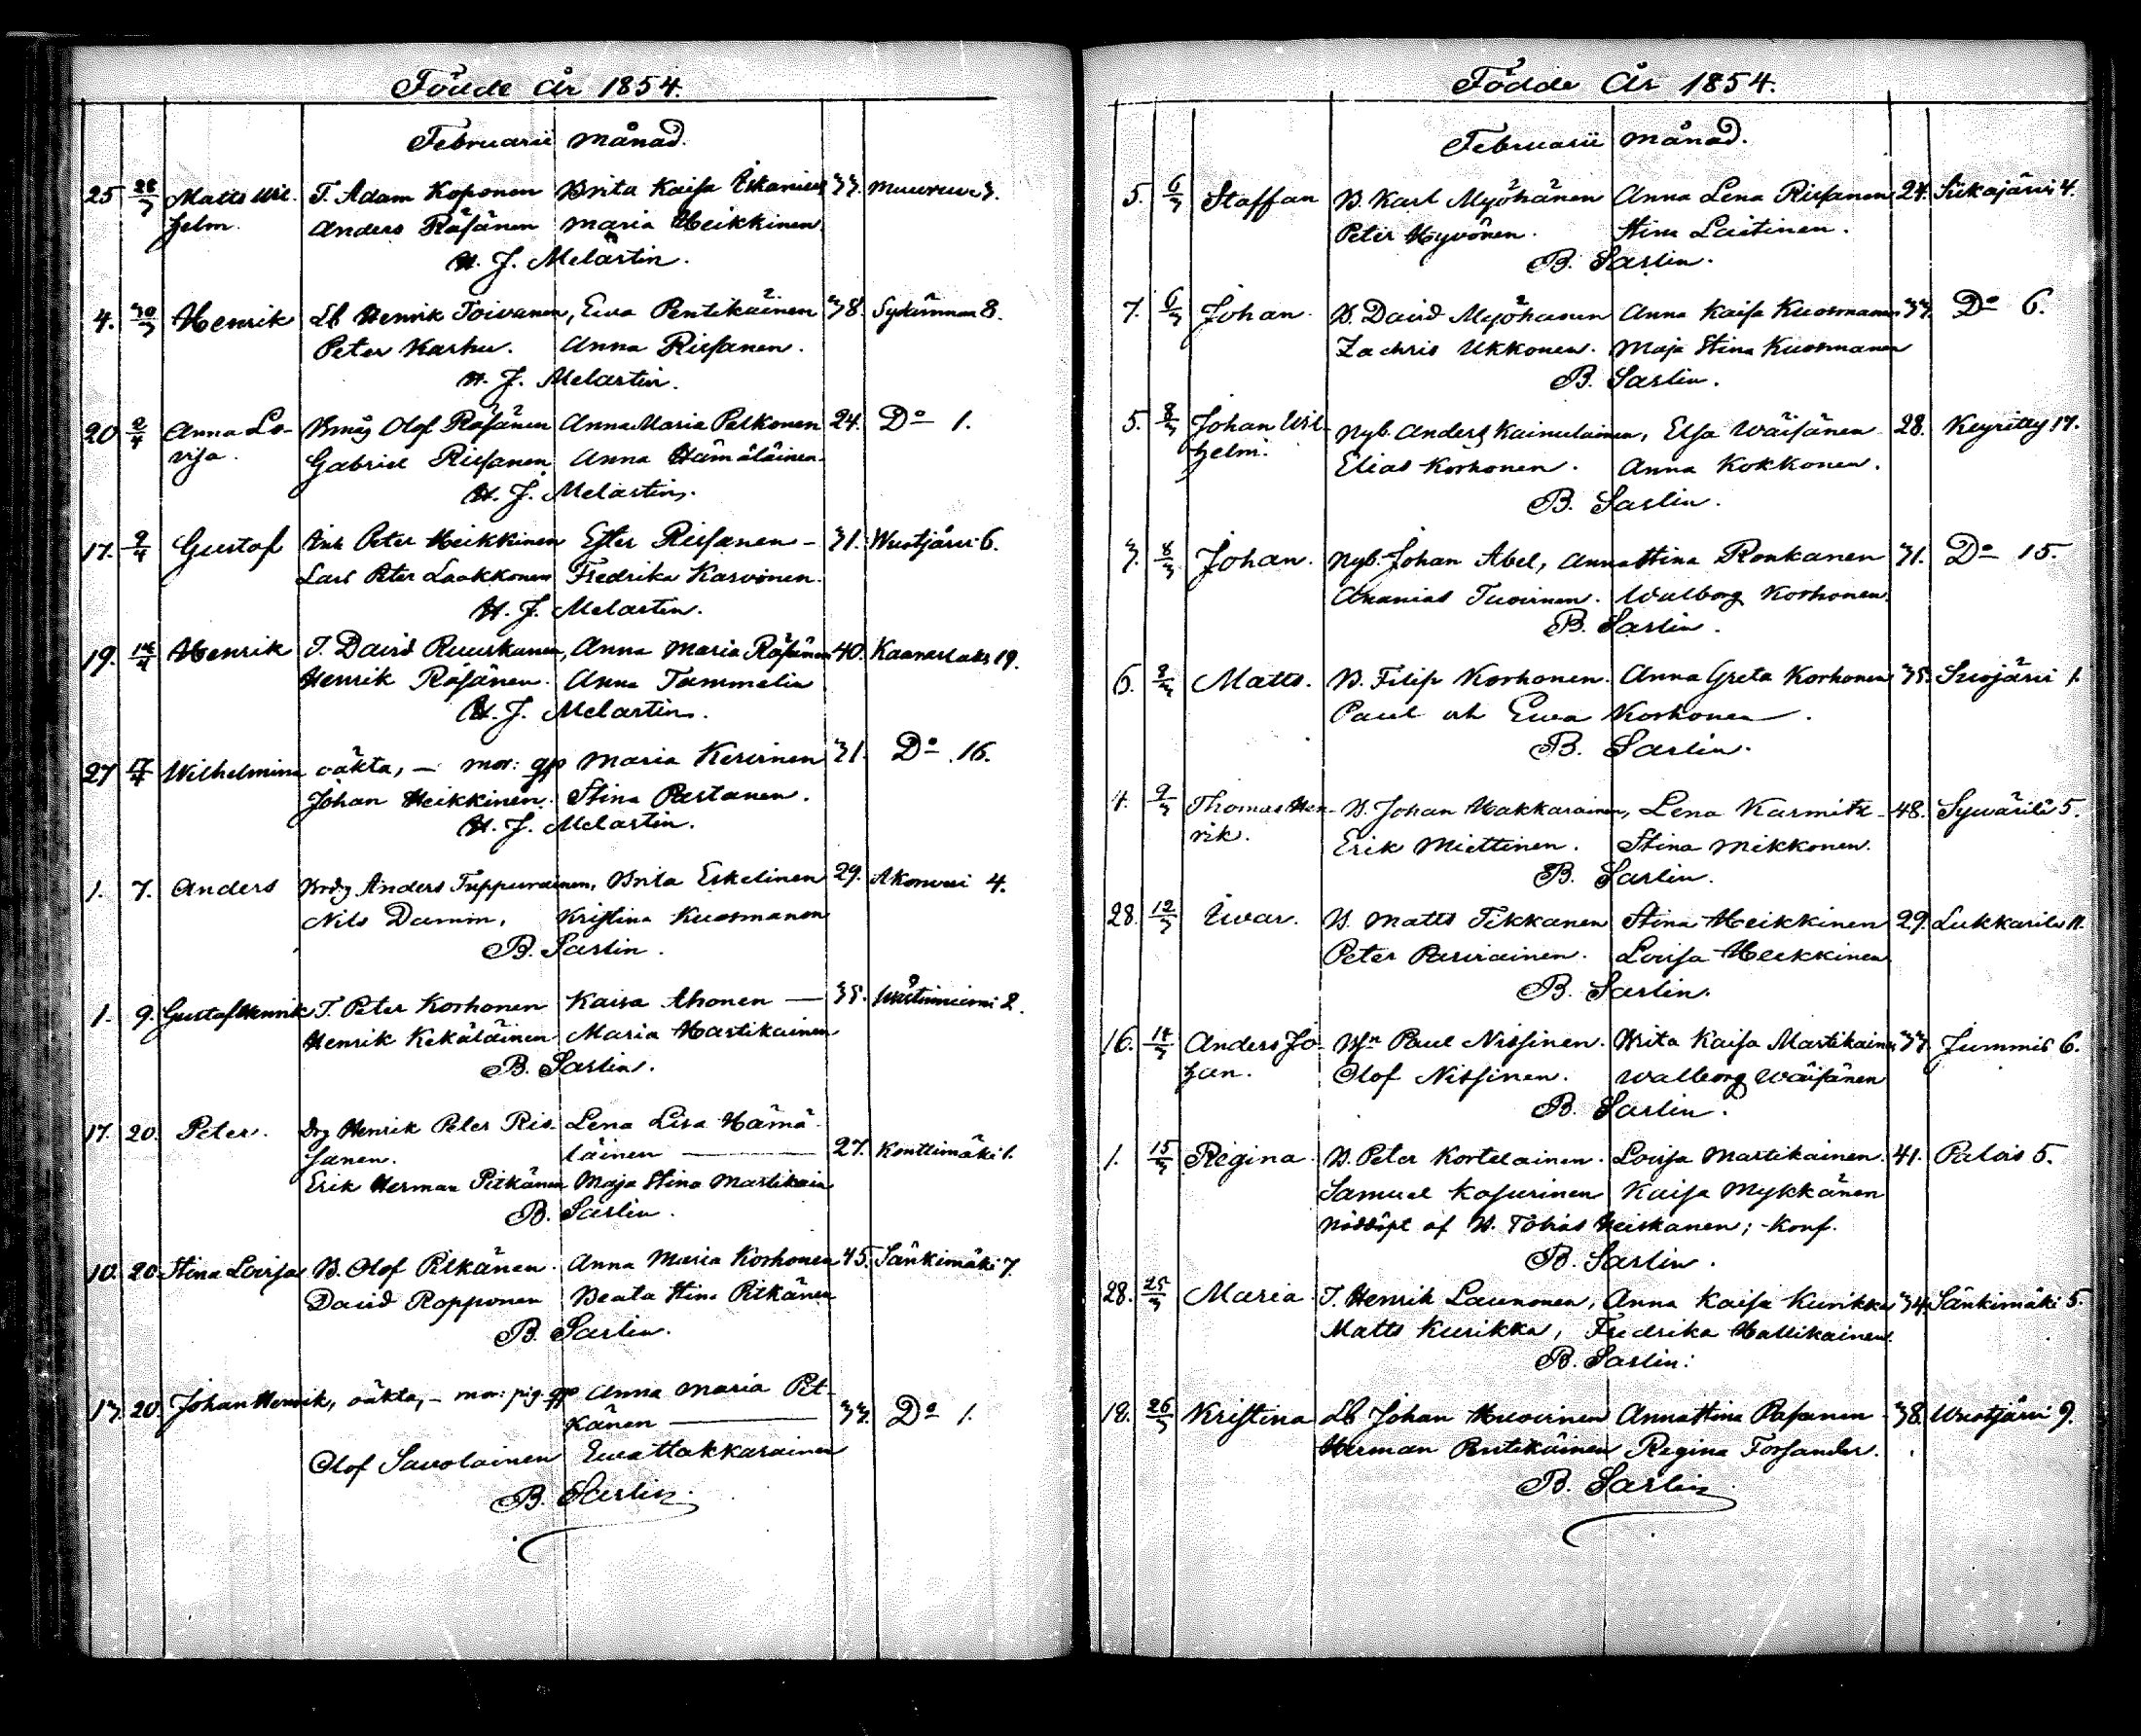 Födde År 1854.
Februarii månad.
25 28/3 Matts Wil- T. Adam Koponen Brita Kaisa Eskanius 33. Muuruus 3.
helm. Anders Räsänen Maria Heikkinen
H. J. Melartin.
4. 30/3 Henrik Lb Henrik Toivanen, Ewa Pentikäinen 38. 8.
Peter Karhu. Anna Rissanen.
H. J. Melartin.
20 2/4 Anna Lo- Olof Räsänen Anna Maria Pelkonen 24. Do 1.
visa. Gabriel Rissanen Anna Hämäläinen.
H. J. Melartin.
17. 9/4 Gustaf Peter Heikkinen Ester Rissanen – 31. Wuotjärvi 6.
Lars Peter Laakkonen Fredrika Karvonen.
H. J. Melartin.
19. 14/4 Henrik T. David Ruuskanen, Anna Maria Räsänen 40. 19.
Henrik Räsänen. Anna Tammelin
H. J. Melartin.
27 17/4 Wilhelmina oäkta, – mor: gp Maria Kervinen 31. Do 16.
Johan Heikkinen. Stina Partanen.
H. J. Melartin.
1. 7. Anders Anders Tuppurainen, Brita Eskelinen 29. Akonvesi 4.
Nils Damm, Kristina Kuosmanen
B. Sarlin.
1. 9. Gustaf Henrik T. Peter Korhonen Kaisa Ahonen — 35. 2.
Henrik Kekäläinen Maria Hartikainen
B. Sarlin.
17. 20. Peter. Drg Henrik Peter Ris- Lena Lisa Hämä-
sanen. läinen — 27. Konttimäki 1.
Erik Herman Pitkänen Maja Stina Martikain
B. Sarlin.
10. 20. Stina Lovisa B. Olof Pitkänen. Anna Maria Korhonen 45. Sänkimäki 7.
David Ropponen Beata Stina Pitkänen
B. Sarlin.
13. 20. Johan Henrik, oäkta, – mor: pig. gp Anna Maria Pit-
känen — 33. Do 1.
Olof Savolainen Ewa Hakkarainen
B. Sarlin.
Födde År 1854.
Februarii månad.
5. 6/3 Staffan B. Karl Myöhänen Anna Lena Rissanen 24. Siikajärvi 4.
Peter Hyvönen. Stina Laitinen.
B. Sarlin.
7. 6/3 Johan. B. David Myöhänen Anna Kaisa Kuosmanen 33. Do 6.
Zachris Ukkonen. Maja Stina Kuosmanen
B. Sarlin.
5. 8/3 Johan Wil- Nyb. Anders Kainulainen, Elsa Wäisänen 28. Keyritty 17.
helm. Elias Korhonen. Anna Kokkonen.
B. Sarlin.
3. 8/3 Johan. Nyb. Johan Abel, Anna Stina Ronkanen 31. Do 15.
Ananias Tuovinen. Walborg Korhonen.
B. Sarlin.
6. 8/3 Matts. B. Filip Korhonen. Anna Greta Korhonen 35. Suojärvi 1.
Paul och Ewa Korhonen.
B. Sarlin.
4. 9/3 Thomas Hen- B. Johan Hakkarainen, Lena Karmitz – 48. Sywärilä 5.
rik. Erik Miettinen. Stina Mikkonen.
B. Sarlin.
28. 12/3 Iwar. B. Matts Tikkanen Stina Heikkinen 29. Lukkarila 11.
Peter Parviainen. Lovisa Heikkinen
B. Sarlin.
16. 14/3 Anders Jo- Bsn Paul Nissinen. Brita Kaisa Martikainen 33. Jummis 6.
han. Olof Nissinen. Walborg Wäisänen
B. Sarlin.
1. 15/3 Regina. B. Peter Kortelainen. Lovisa Martikainen. 41. Palois 5.
Samuel Kasurinen Kaisa Mykkänen
Nöddöpt af B. Tobias Heiskanen; Konf.
B. Sarlin.
28. 25/3 Maria. T. Henrik Launonen, Anna Kaisa Kurikka 34. Sänkimäki 5.
Matts Kurikka, Fredrika Hallikainen.
B. Sarlin.
18. 26/3 Kristina Lb Johan Huvinen Anna Stina Pasanen 38. Wuotjärvi 9.
Herman Pentikäinen Regina Forsander.
B. Sarlin.